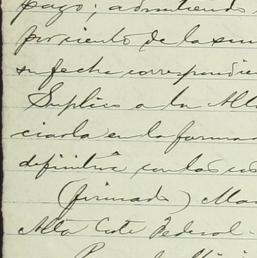 pago; admitiendo
por ciento de la sum
su fecha correspondie
Suplico a la Alta
ciarla en la forma
definitiva con las cos
(firmado) Ma
Alta Corte Federal.-